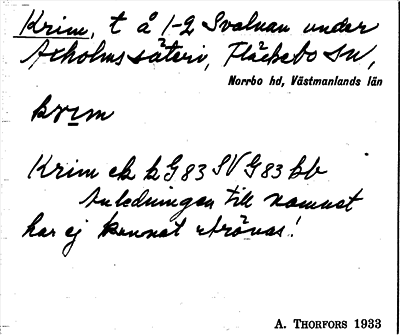 Krim, t å 1-2 Svalnan under
Axholms säteri, Fläckebo sn,
Norrbo hd, Västmanlands län
krim
Krim ek k G83 SV G83 bb
Anledningen till namnet
har ej kunnat utrönas!
A. THORFORS 1933